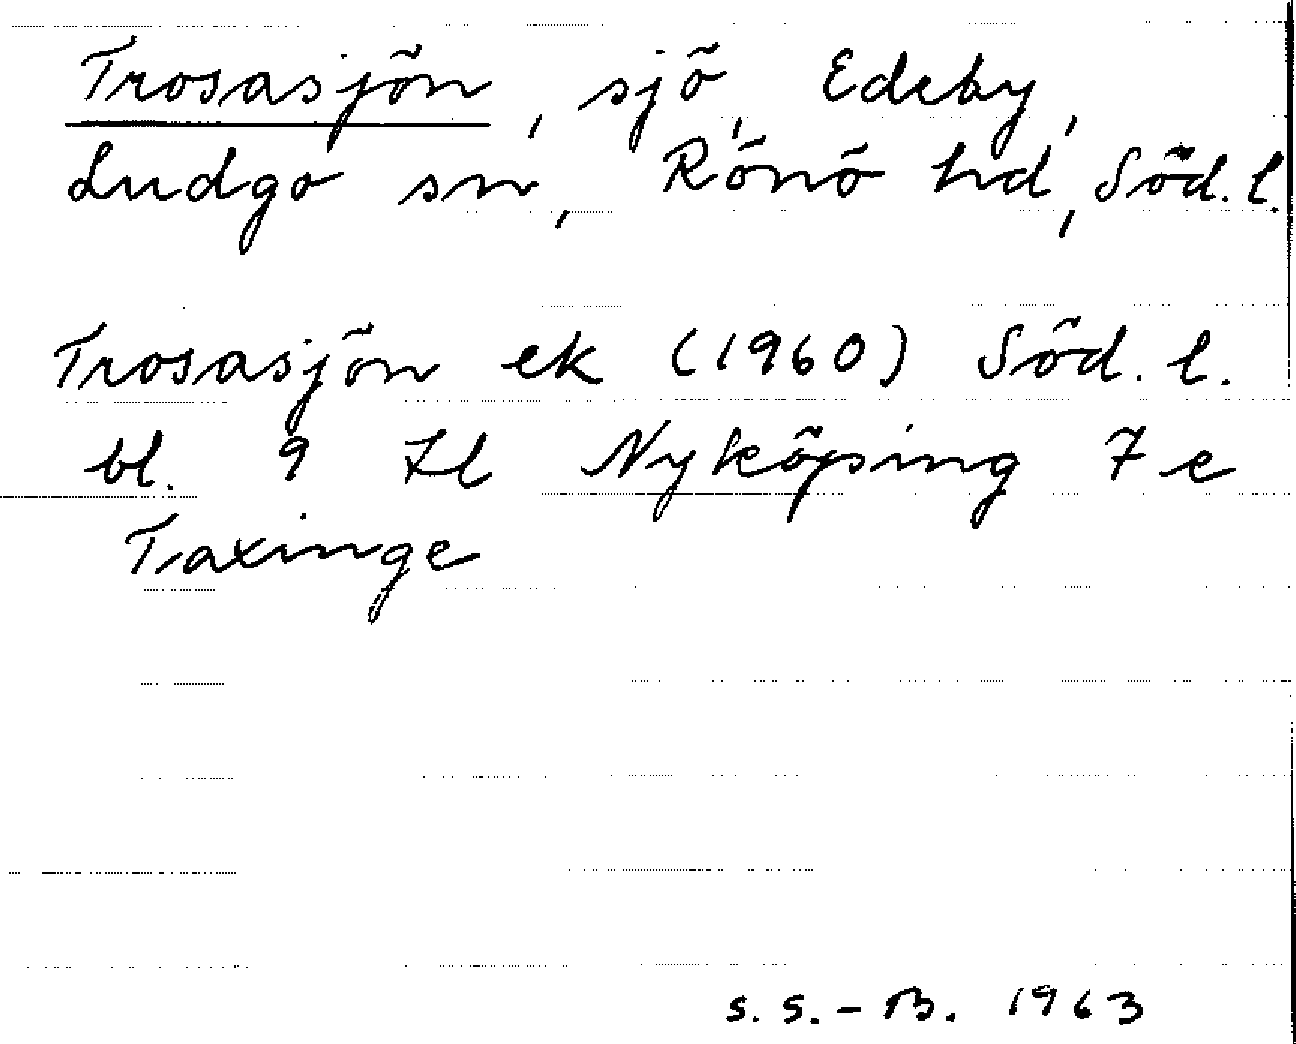 Trosasjön, sjö, Edeby,
Ludgo sn, Rönö hd, Söd. l.
Trosasjön ek (1960) Söd. l.
bl. 9 Il Nyköping 7 e
Taxinge
S. S. - B. 1963